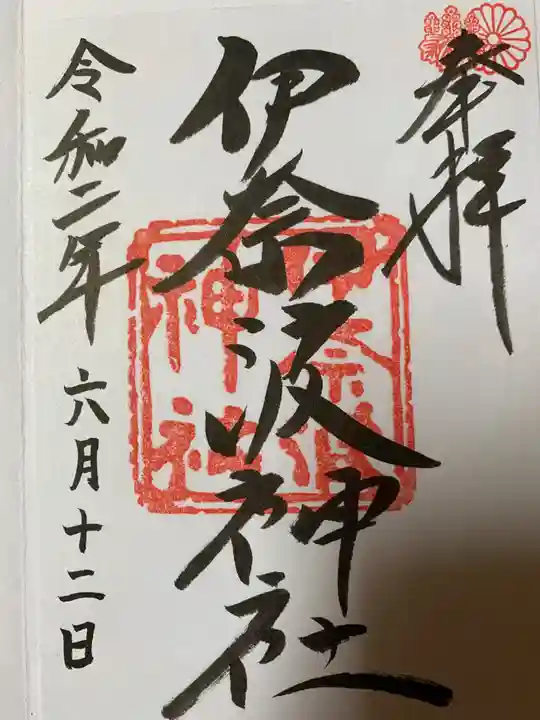 奉拝
伊奈波神社
伊奈波神社
令和二年 六月十二日